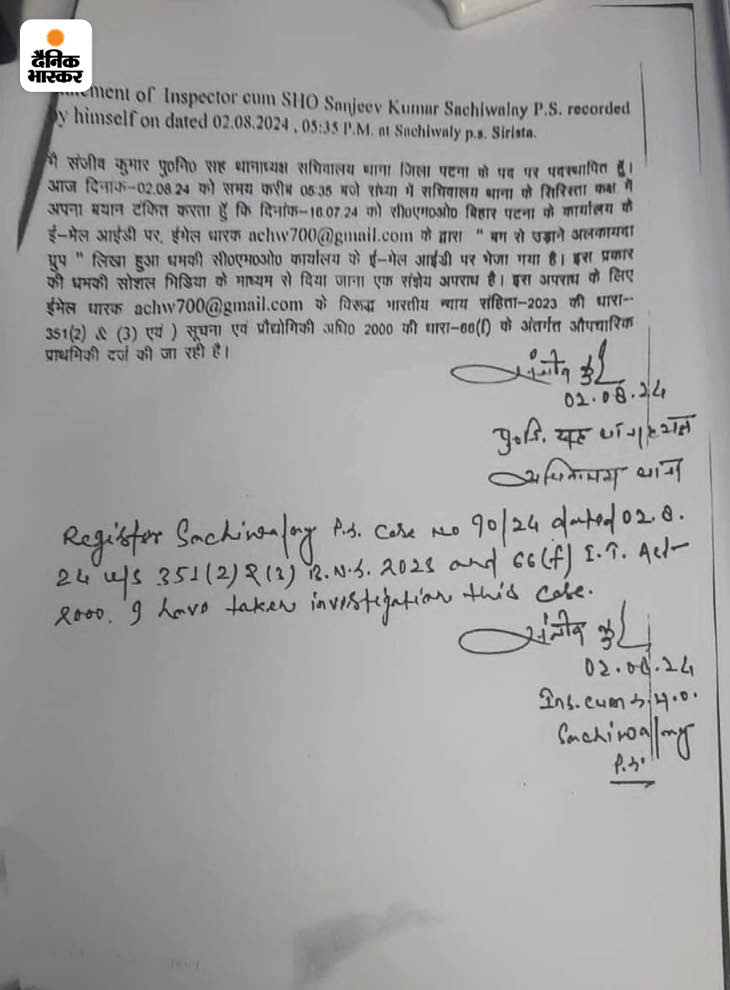 दैनिक
भास्कर
ement of Inspector cum SHO Sanjeev Kumar Sachiwalay P.S. recorded
by himself on dated 02.08.2024 , 05:35 P.M. at Sachiwaly p.s. Sirista.
मै संजीव कुमार पु०नि० सह थानाध्यक्ष सचिवालय थाना जिला पटना के पद पर पदस्थापित हूँ।
आज दिनांक-02.08.24 को समय करीब 05:35 बजे संध्या में सचिवालय थाना के सिरिस्ता कक्ष में
अपना बयान टंकित करता हूँ कि दिनांक-16.07.24 को सी०एम०ओ० बिहार पटना के कार्यालय के
ई-मेल आईडी पर, ईमेल धारक achw700@gmail.com के द्वारा " बम से उड़ाने अलकायदा
ग्रुप " लिखा हुआ धमकी सी०एम०ओ० कार्यालय के ई-मेल आईडी पर भेजा गया है। इस प्रकार
की धमकी सोशल मिडिया के माध्यम से दिया जाना एक संज्ञेय अपराध है। इस अपराध के लिए
ईमेल धारक achw700@gmail.com के विरूद्ध भारतीय न्याय संहिता-2023 की धारा--
351(2) & (3) एवं ) सूचना एवं प्रौद्योगिकी अधि० 2000 की धारा-66(f) के अंतर्गत औपचारिक
प्राथमिकी दर्ज की जा रही है।
संजीव कु०
02.08.24
पु०नि. सह थानाध्यक्ष
सचिवालय थाना
Register Sachiwalay P.S. Case No 90/24 dated 02.8.
24 u/s 351(2) & (3) B.N.S. 2023 and 66(f) I.T. Act-
2000. I have taken investigation this case.
संजीव कु०
02.08.24
Ins. cum S.H.O.
Sachiwalay
P.S.